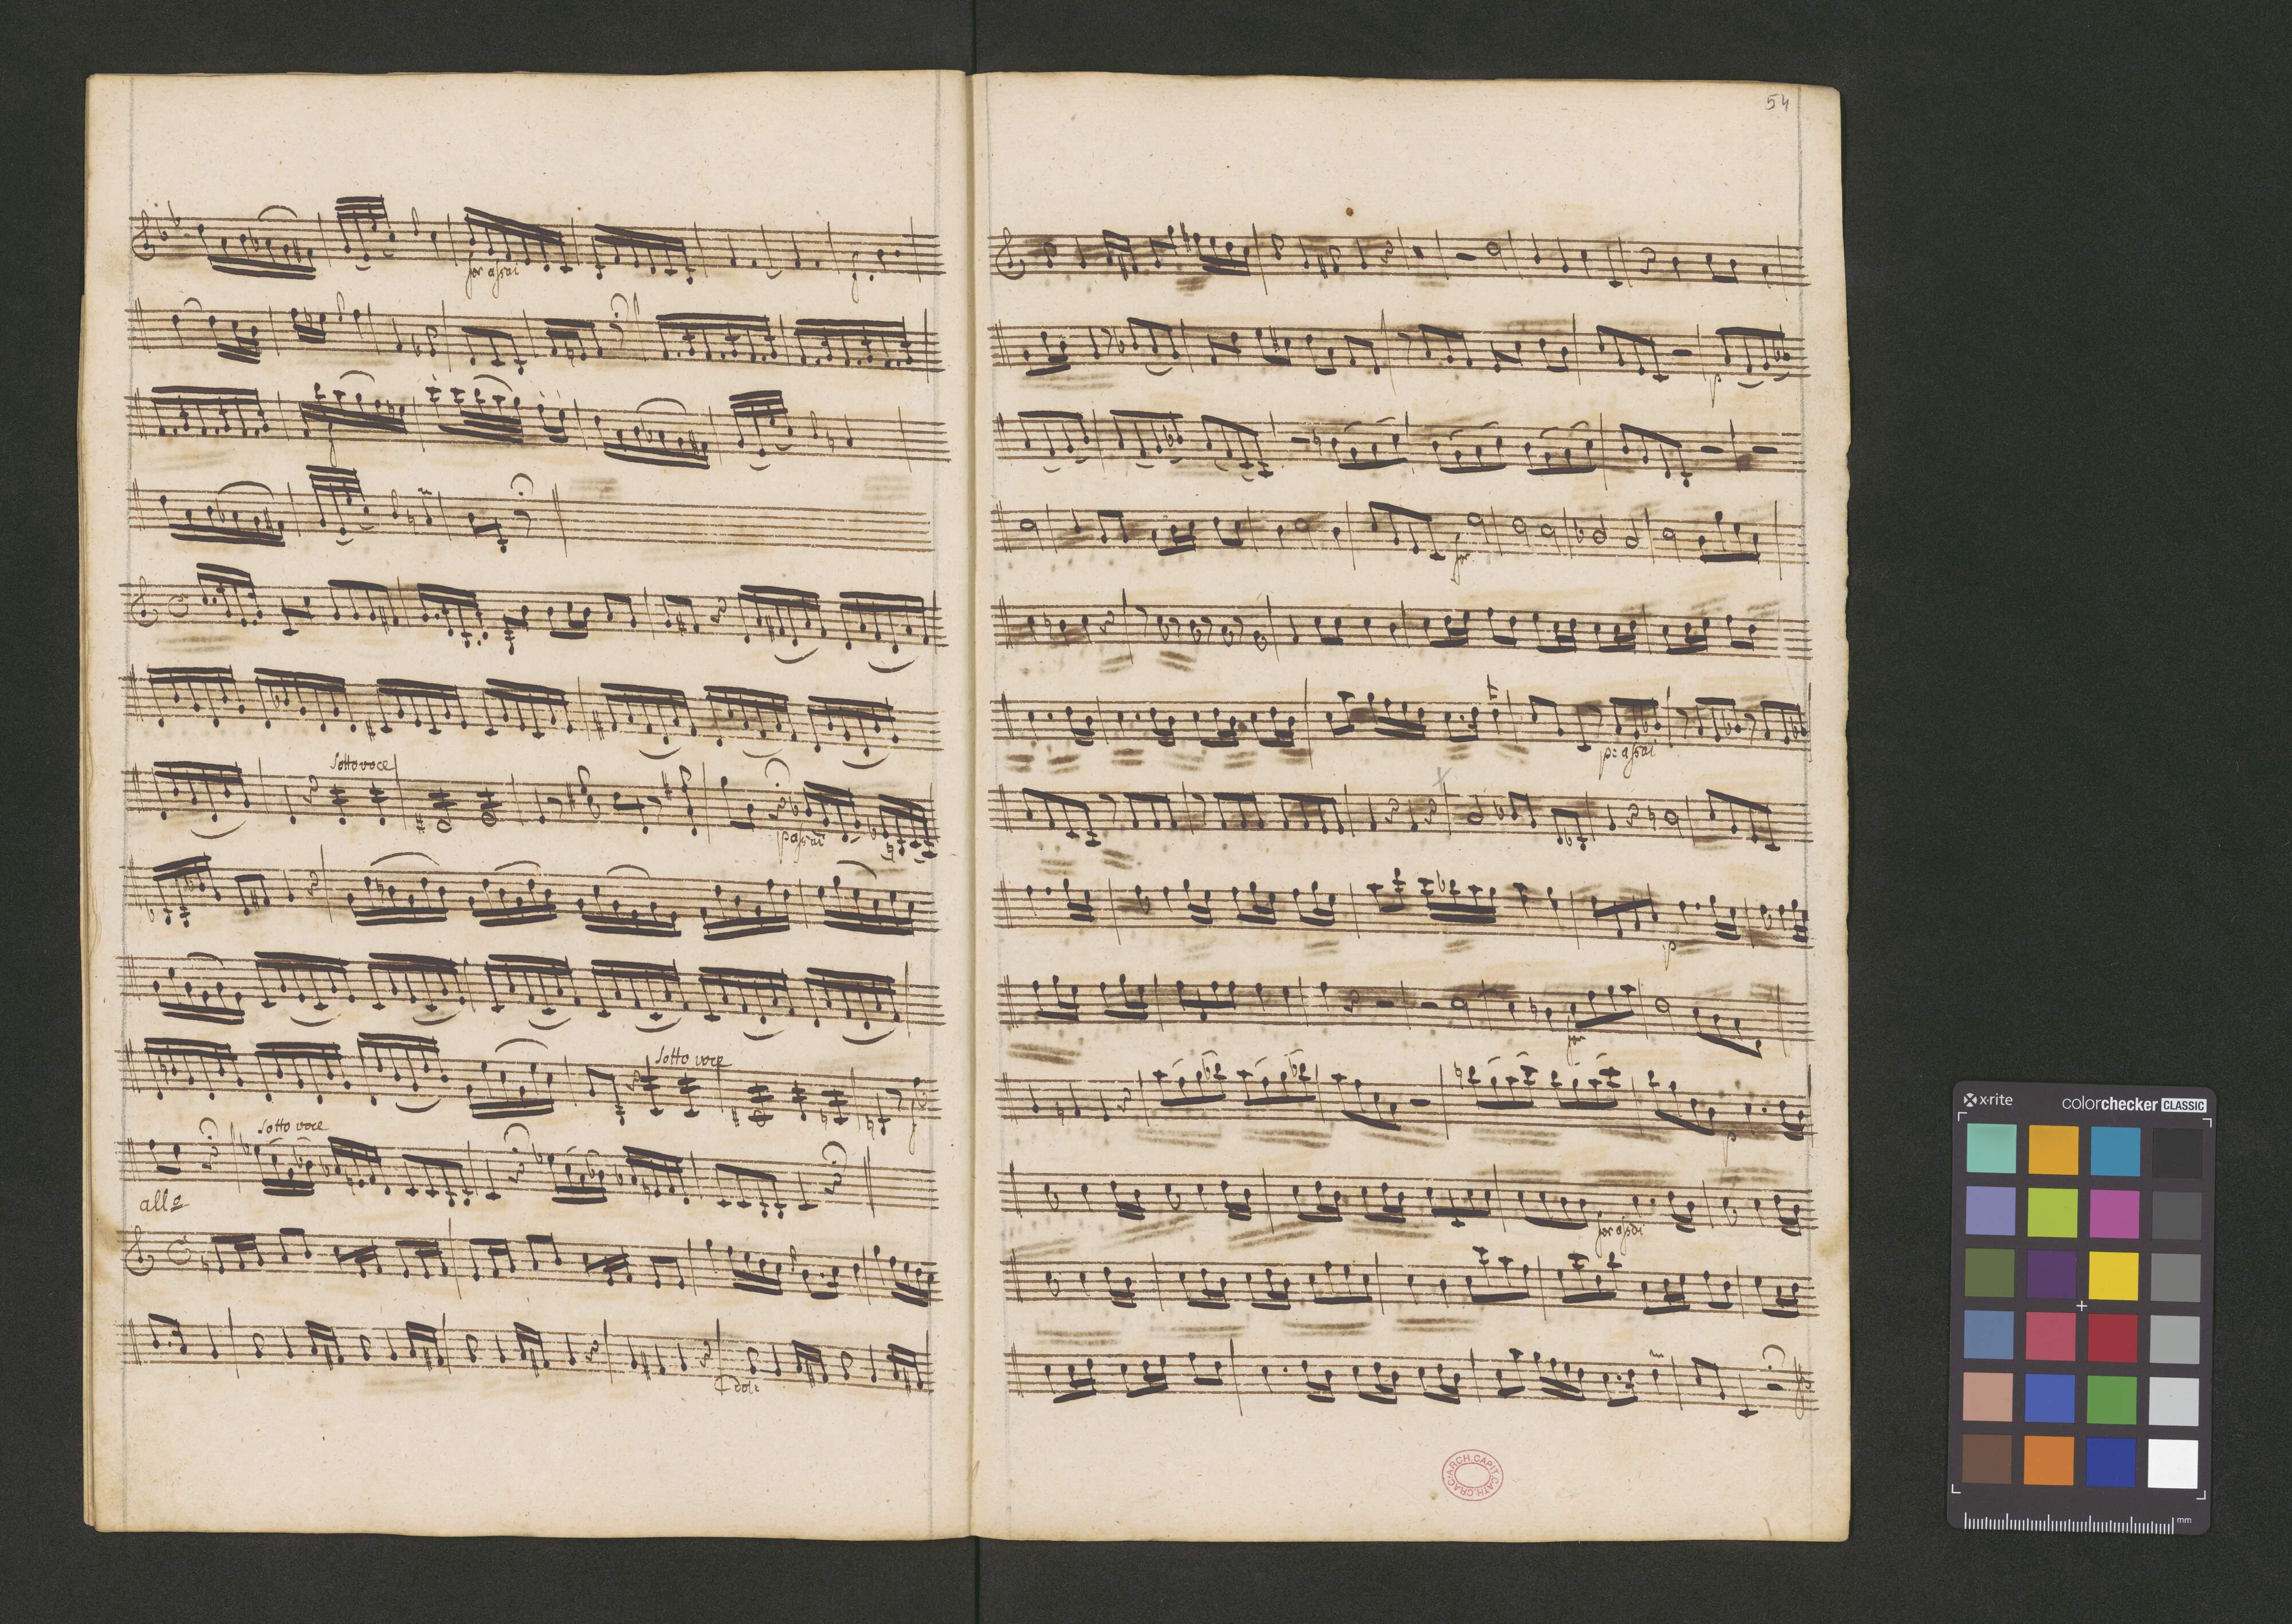 54
for assai
f
f
sotto voce
p assai
sotto voce
f
sotto voce
all°
dol:
p
for
p: assai
p
for
p
for assai
ARCH. CAPIT. CATH. CRAC
x-rite
colorchecker CLASSIC
mm